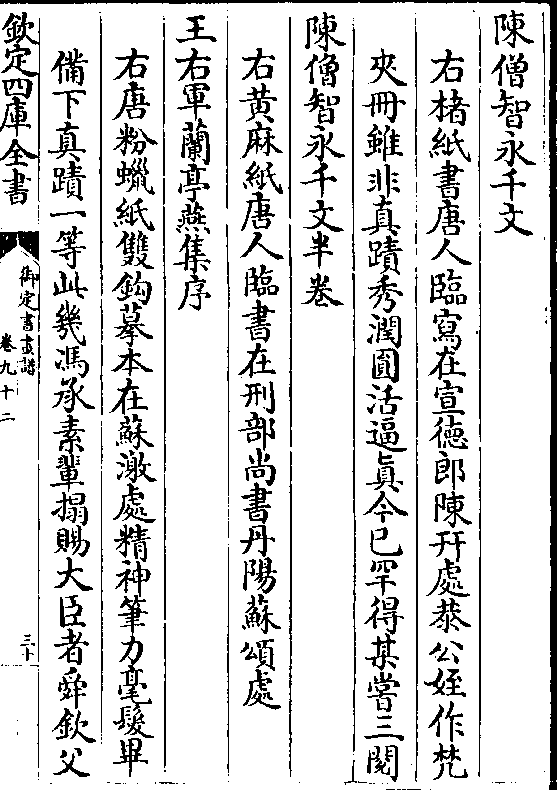 陳僧智永千文
右楮紙書唐人臨寫在宣徳郎陳开處恭公姪作梵
夾冊雖非真蹟秀潤圓活逼真今已罕得某嘗三閲
陳僧智永千文半卷
右黄麻紙唐人臨書在刑部尚書丹陽蘇頌處
王右軍蘭亭燕集序
右唐粉蠟紙雙鈎摹本在蘇激處精神筆力毫髮畢
備下真蹟一等此幾馮承素輩搨賜大臣者舜欽父
欽定四庫全書
御定書畫譜
卷九十二
三十